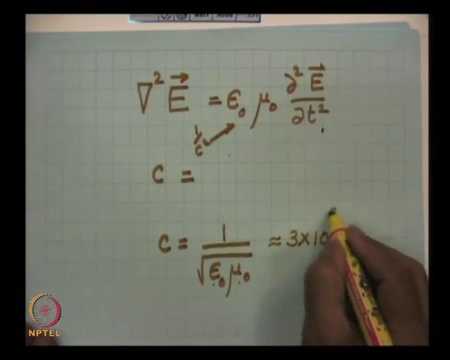 ∇² E⃗ = ε₀ μ₀ ∂² E⃗ / ∂t²
C =
C = 1 / √(ε₀ μ₀) ≈ 3×10
NPTEL